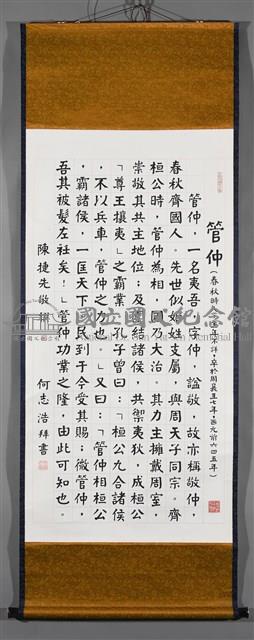 管仲(春秋時
管仲,一名夷吾,字仲,諡敬,故亦稱敬仲,
春秋齊國人。先世似姬姓支屬,與周天子同宗。齊
桓公時,管仲為相,國乃大治。其力主擁戴周室,
崇敬其共主地位;及團結諸侯,共禦夷狄,成桓公
「尊王攘夷」之霸業。孔子曾曰:「桓公九合諸侯
,不以兵車,管仲之力也。」又曰:「管仲相桓公
,霸諸侯,一匡天下,民到于今受其賜;微管仲,
吾其被髮左衽矣!」管仲功業之隆,由此可知也。
陳捷先敬撰
何志浩拜書
國立國父紀念館